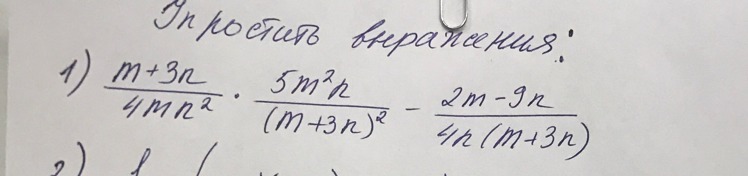 Упростить выражения:
1) (m+3n)/(4mn²) · (5m²n)/((m+3n)²) − (2m−9n)/(4n(m+3n))
2)